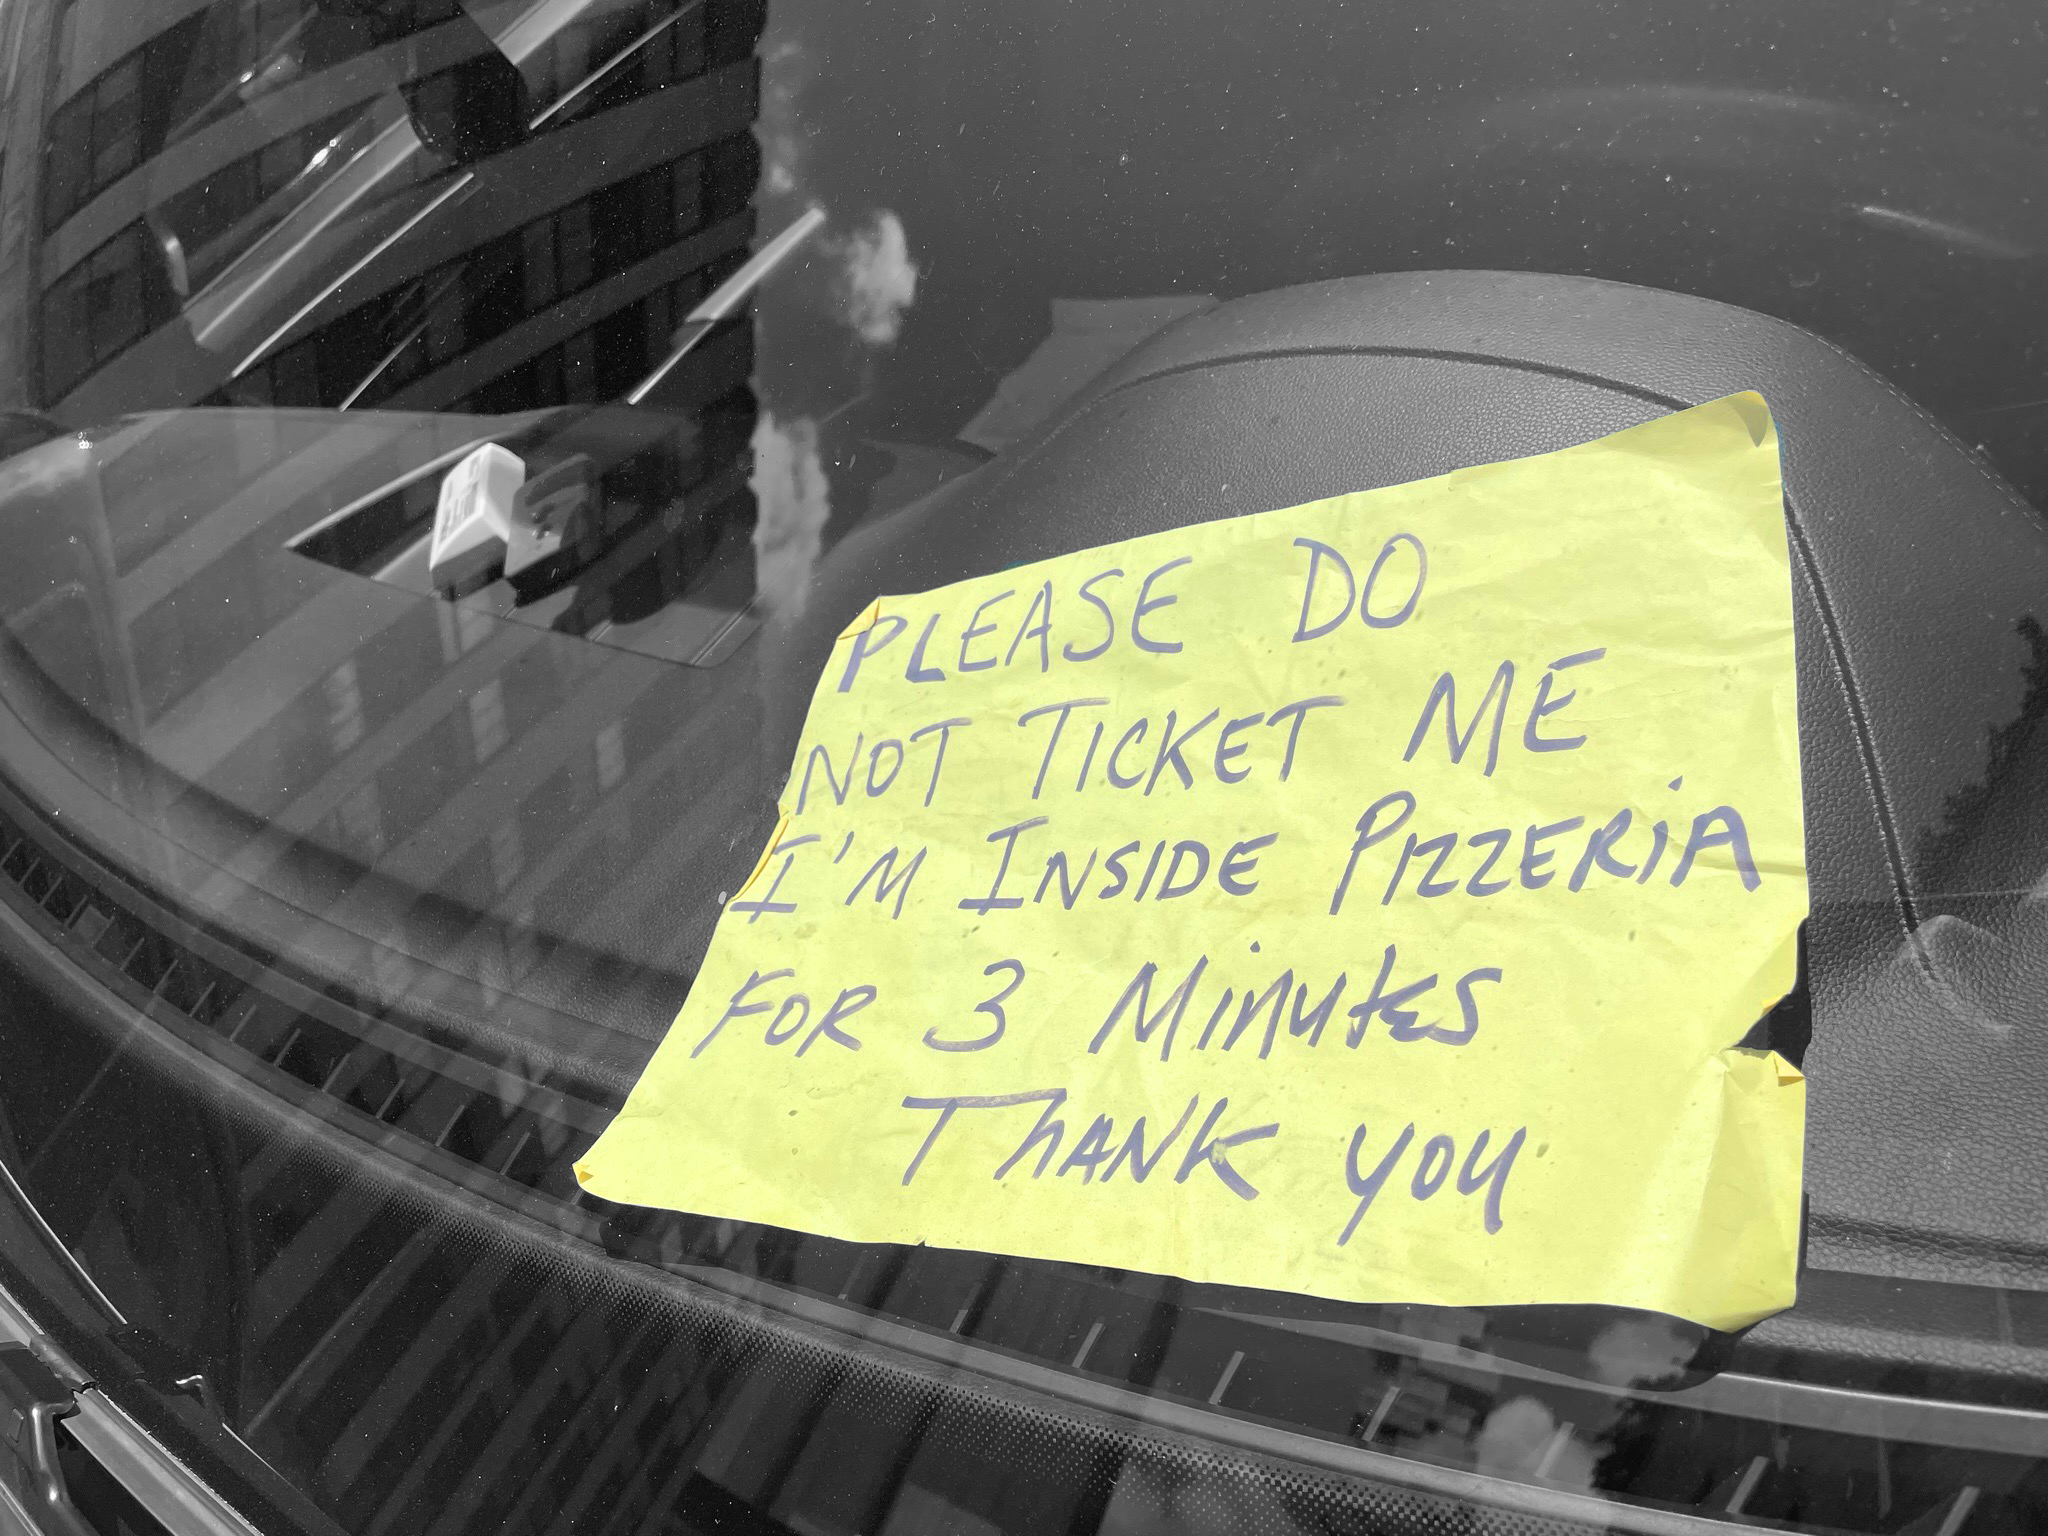 PLEASE DO
NOT TICKET ME
I'M INSIDE PIZZERiA
FOR 3 Minutes
ThANK you